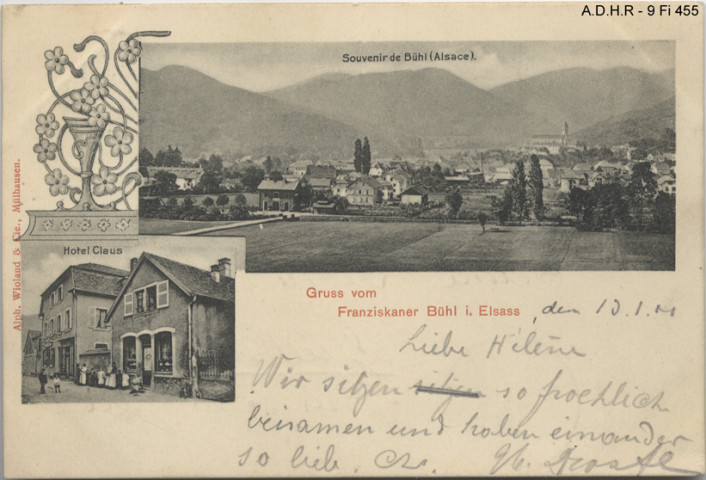 A.D.H.R - 9 Fi 455
Souvenir de Bühl (Alsace).
Hotel Claus
Alph. Wioland & Cie., Mülhausen.
Gruss vom
Franziskaner Bühl i. Elsass, den 13.1.
Liebe Hélène
Wir sitzen sitzen so froehlich
beisamen und haben einander
so lieb.